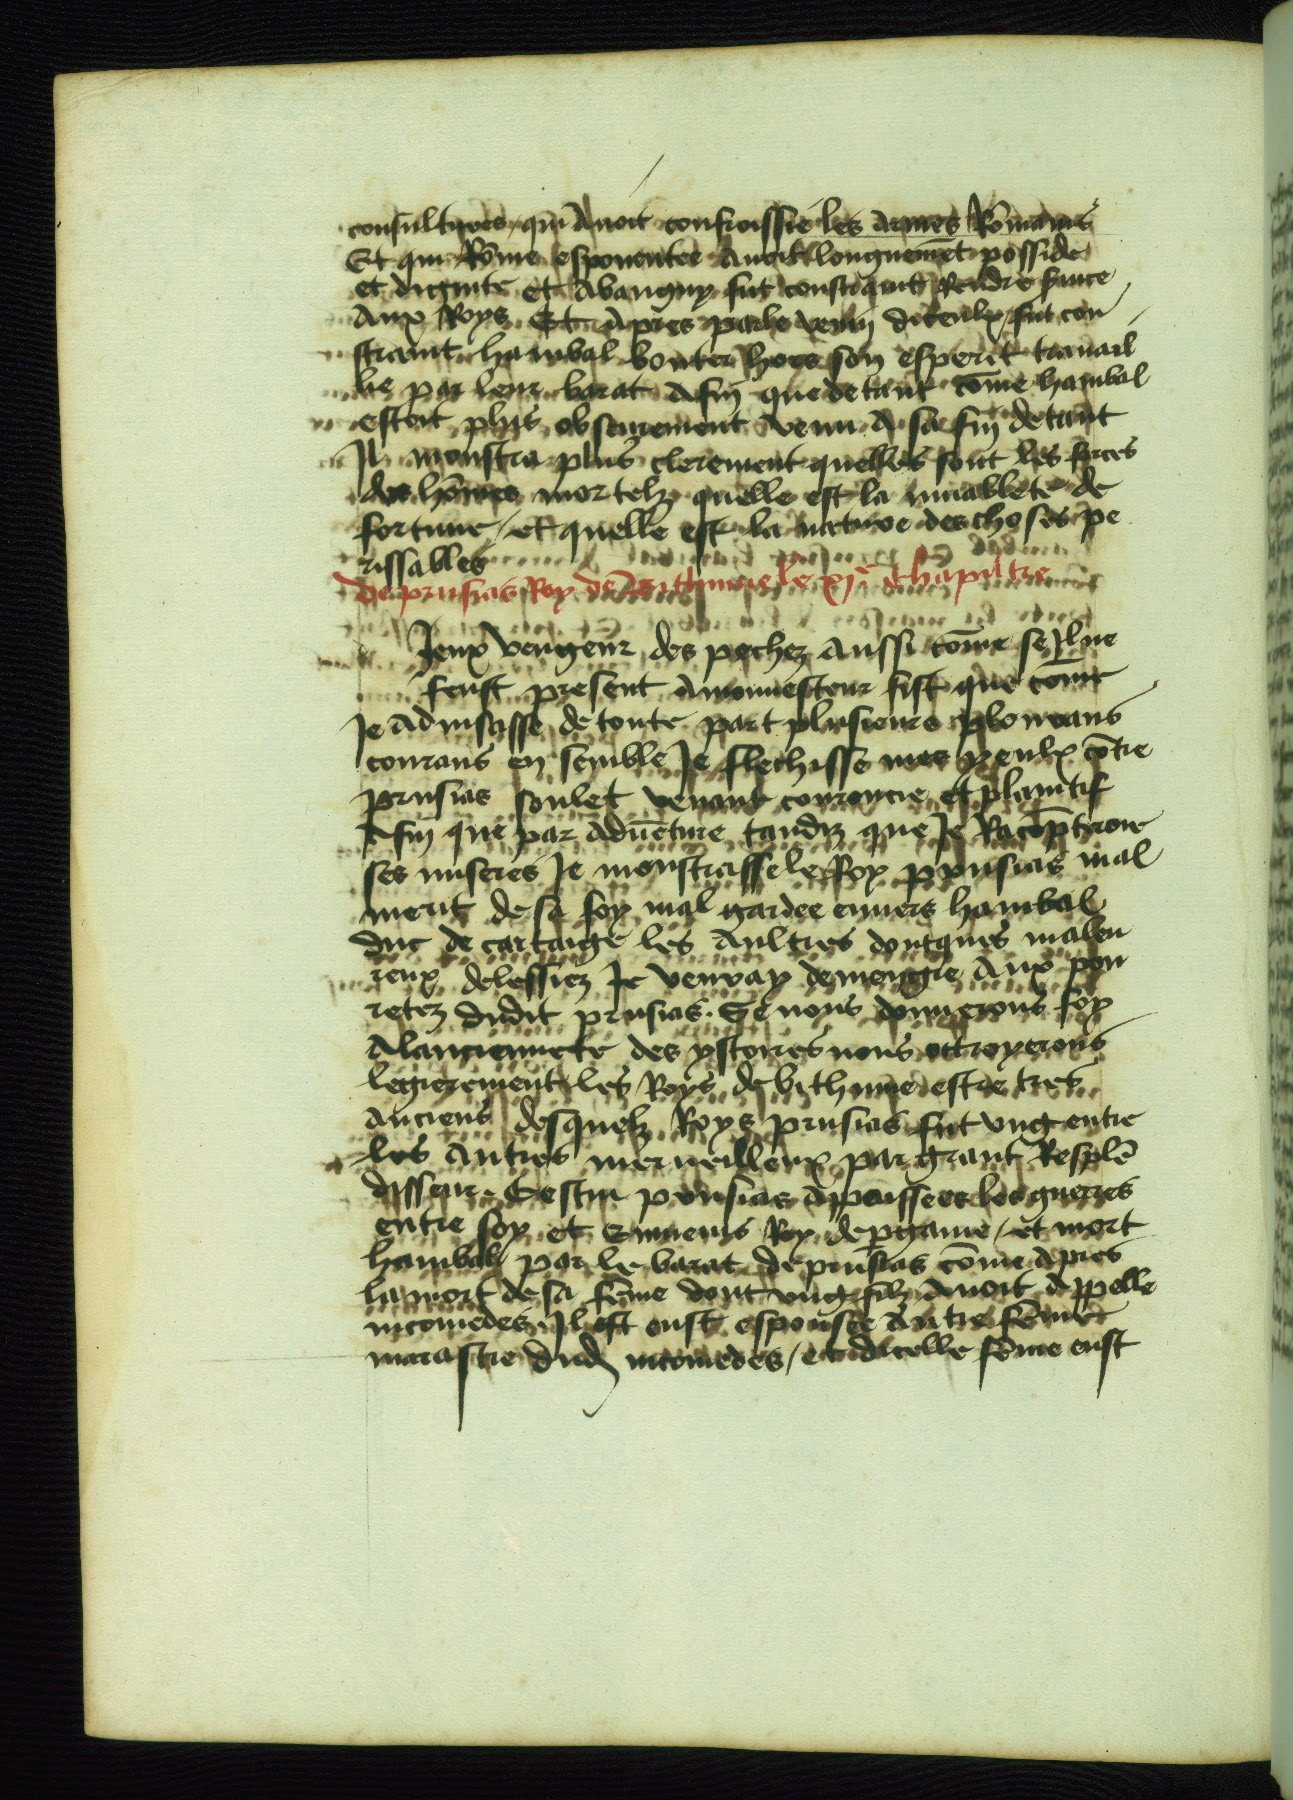 consulaires / qui Avoit confroissie les armes Rōmaines
Et qui Rōme espouentee Auoit longuemēt posside
et dignite et Abanguy fut constraint Rendre sauce
Aux Roys Et Apres par le venin diceulx / fut con
straint hanibal bouter hors son esperit trauail
lie par leur barat Afin que de tant cōme hanibal
estoit plus obscurement venu A sa fin de tant
Il monstra plus clerement quelles sont les forces
des hōmes mortelz quelle est la muablete de
fortune / et quelle est la nature des choses pe
rissables
De prusias Roy de Bithinie le xje chapiltre
Ieux vengeur des pechez Aussi cōme se Il me
feust present Amonnesteur fist que cōme
Je Aduisasse de toute part plusieurs plourans
courans en semble Je flechisse mes yeulx cōtre
prusias soulet venant courouce et plaintif
Afin que par Aduēture tandiz que Je Racōpteroie
ses miseres Je monstrasse le Roy prusias mal
merit de sa foy mal gardee enuers hanibal
duc de cartaige les Aultres doncques maleu
reux delessiez Je venray demongie Aux pou
retez dudit prusias. Se nous donnerons foy
Alanciennete des ystoires nous ottroyerons
legierement les Roys de bithinie estre tres
Anciens desquelz Roys prusias fut vng entre
les Autres merueilleux par grant Resplē
disseur. Cestui prusias Apaussees les guerres
entre soy et Eumenis Roy de pgame / et mort
hanibal par le barat de prusias cōme Apres
la mort de sa fēme dont vng filz Auoit Appelle
nicomedes Il est eust espousee Autre fēme
marastre dud nicomedes / et dicelle fēme eust